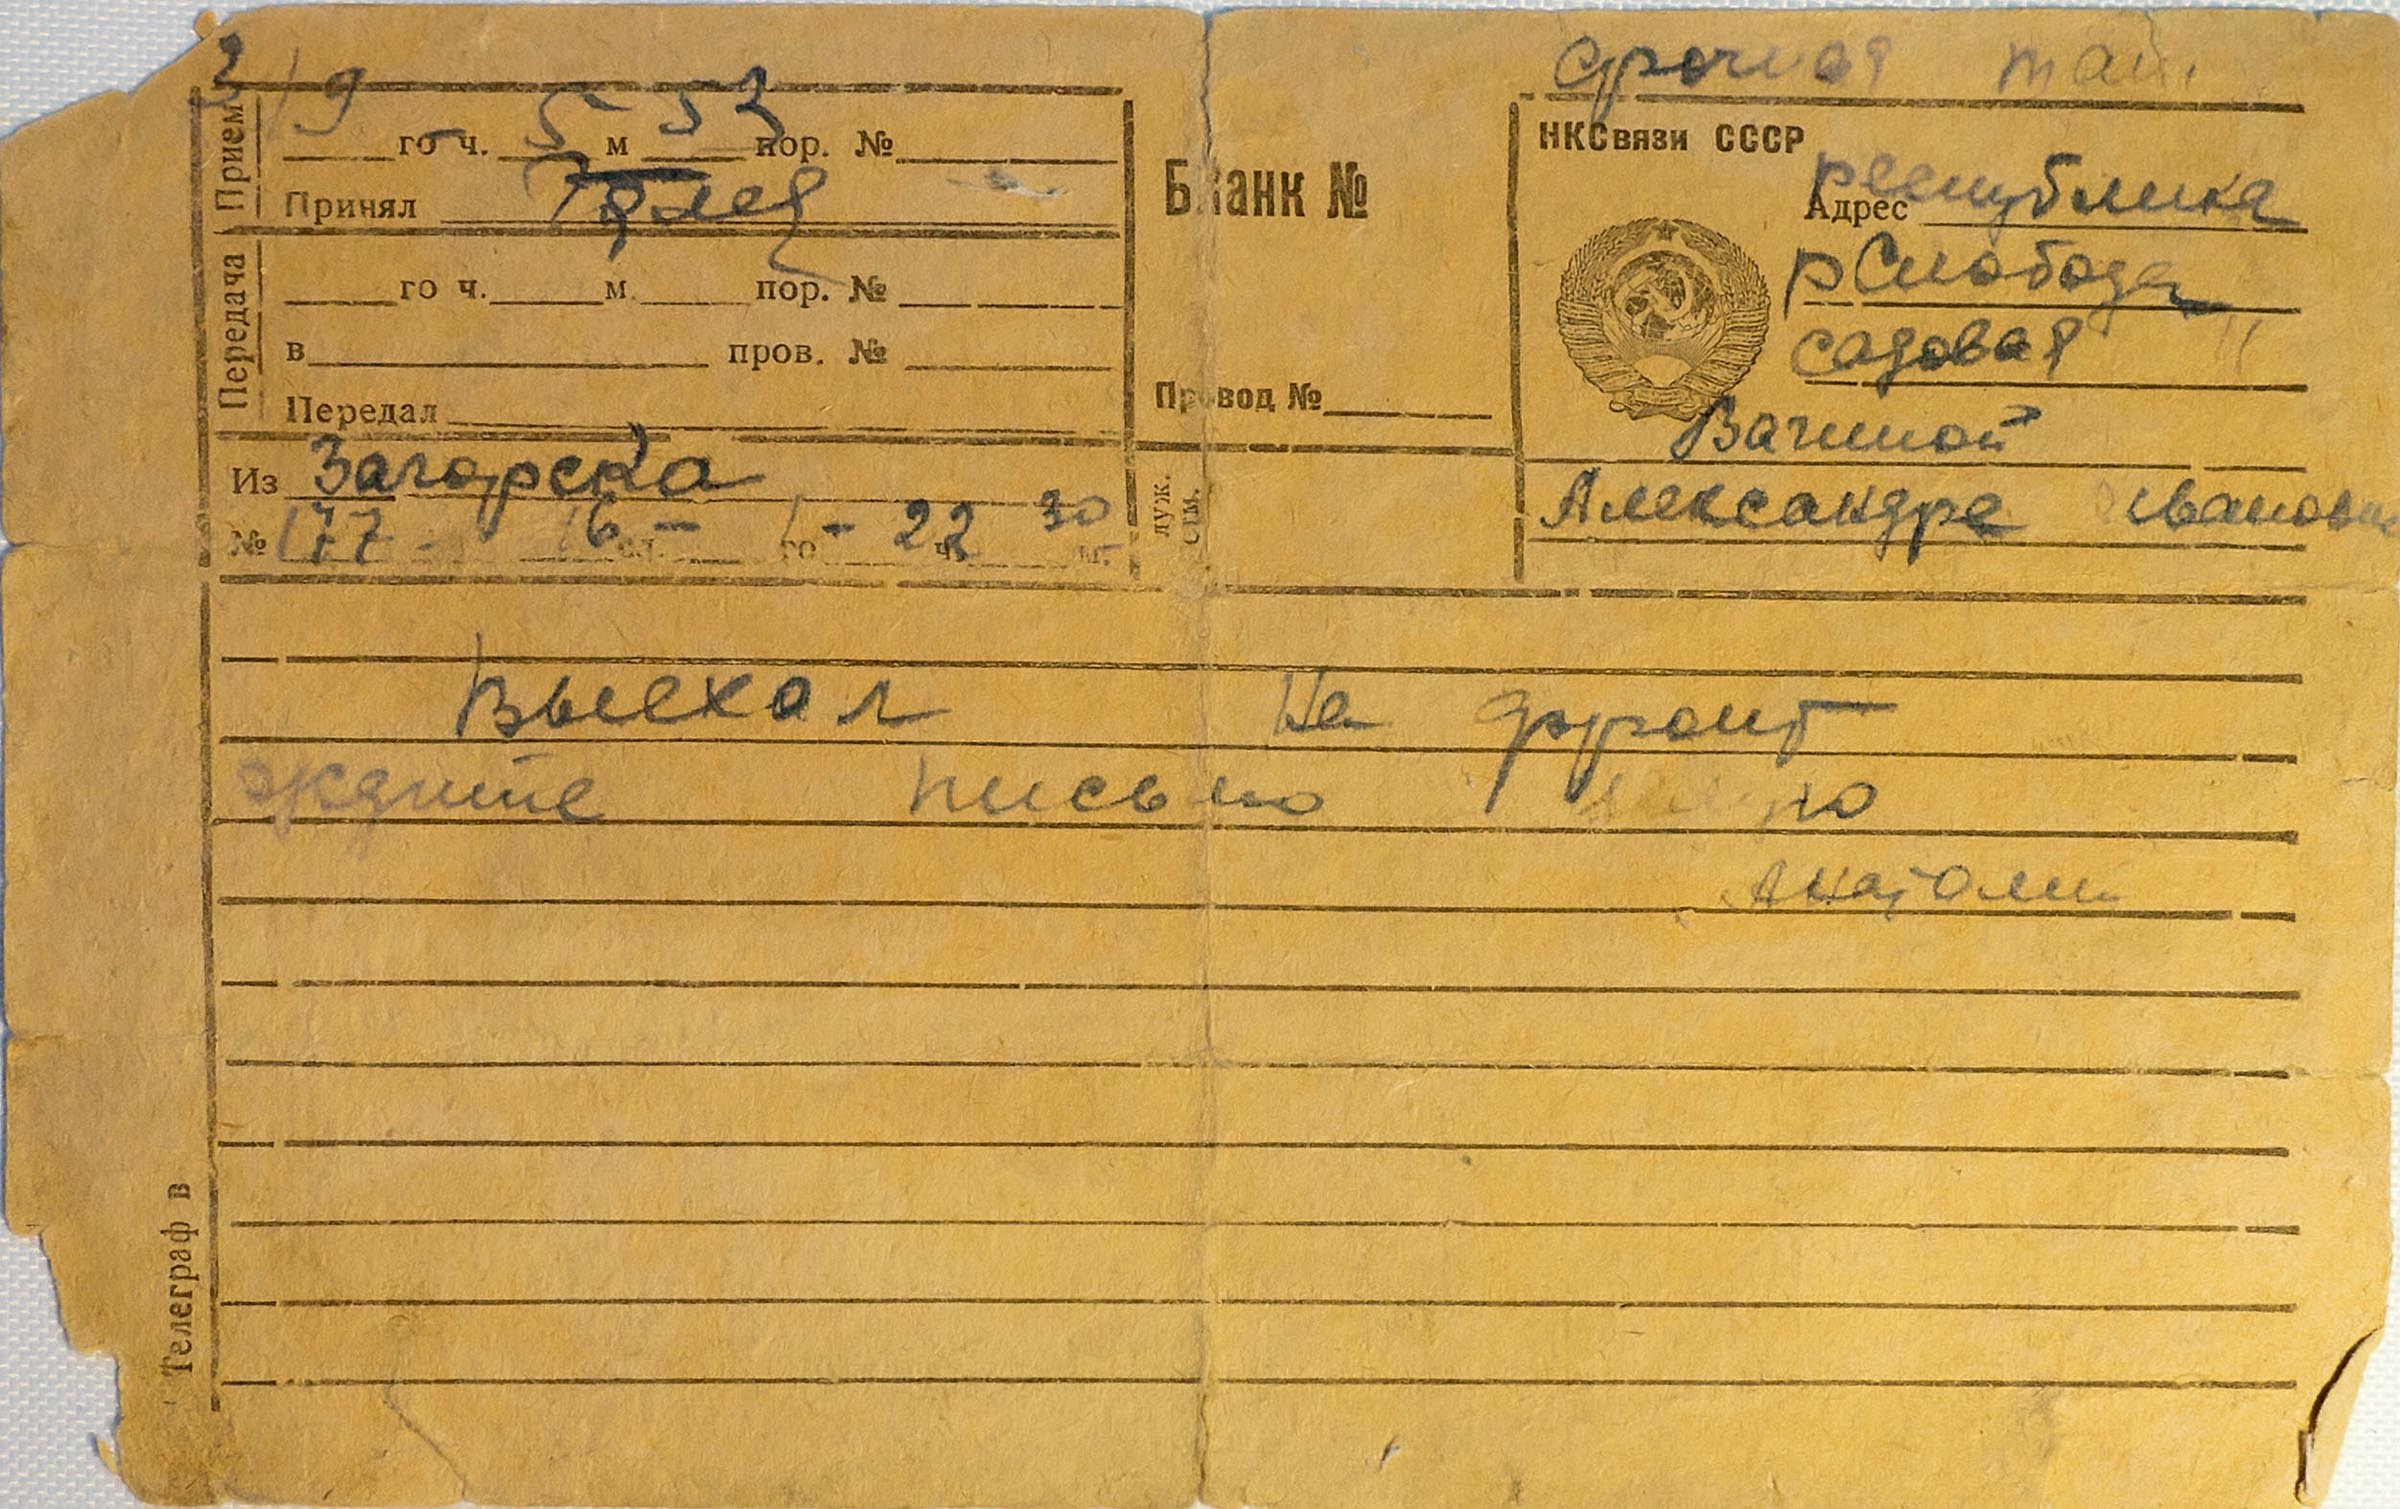 срочная
2/9
Прием
го ч. 5 м 53 пор. №
Принял
Передача
го ч. м. пор. №
в пров. №
Передал
Из Загорска
№ 177 - 16 - го - 22 ч. 30 м.
Бланк №
Провод №
НКСвязи СССР
республика
Адрес
р Слобода
садовая
Вагиной
Александре Ивановне
Выехал на фронт
ждите письмо
Анатолий
Телеграф в